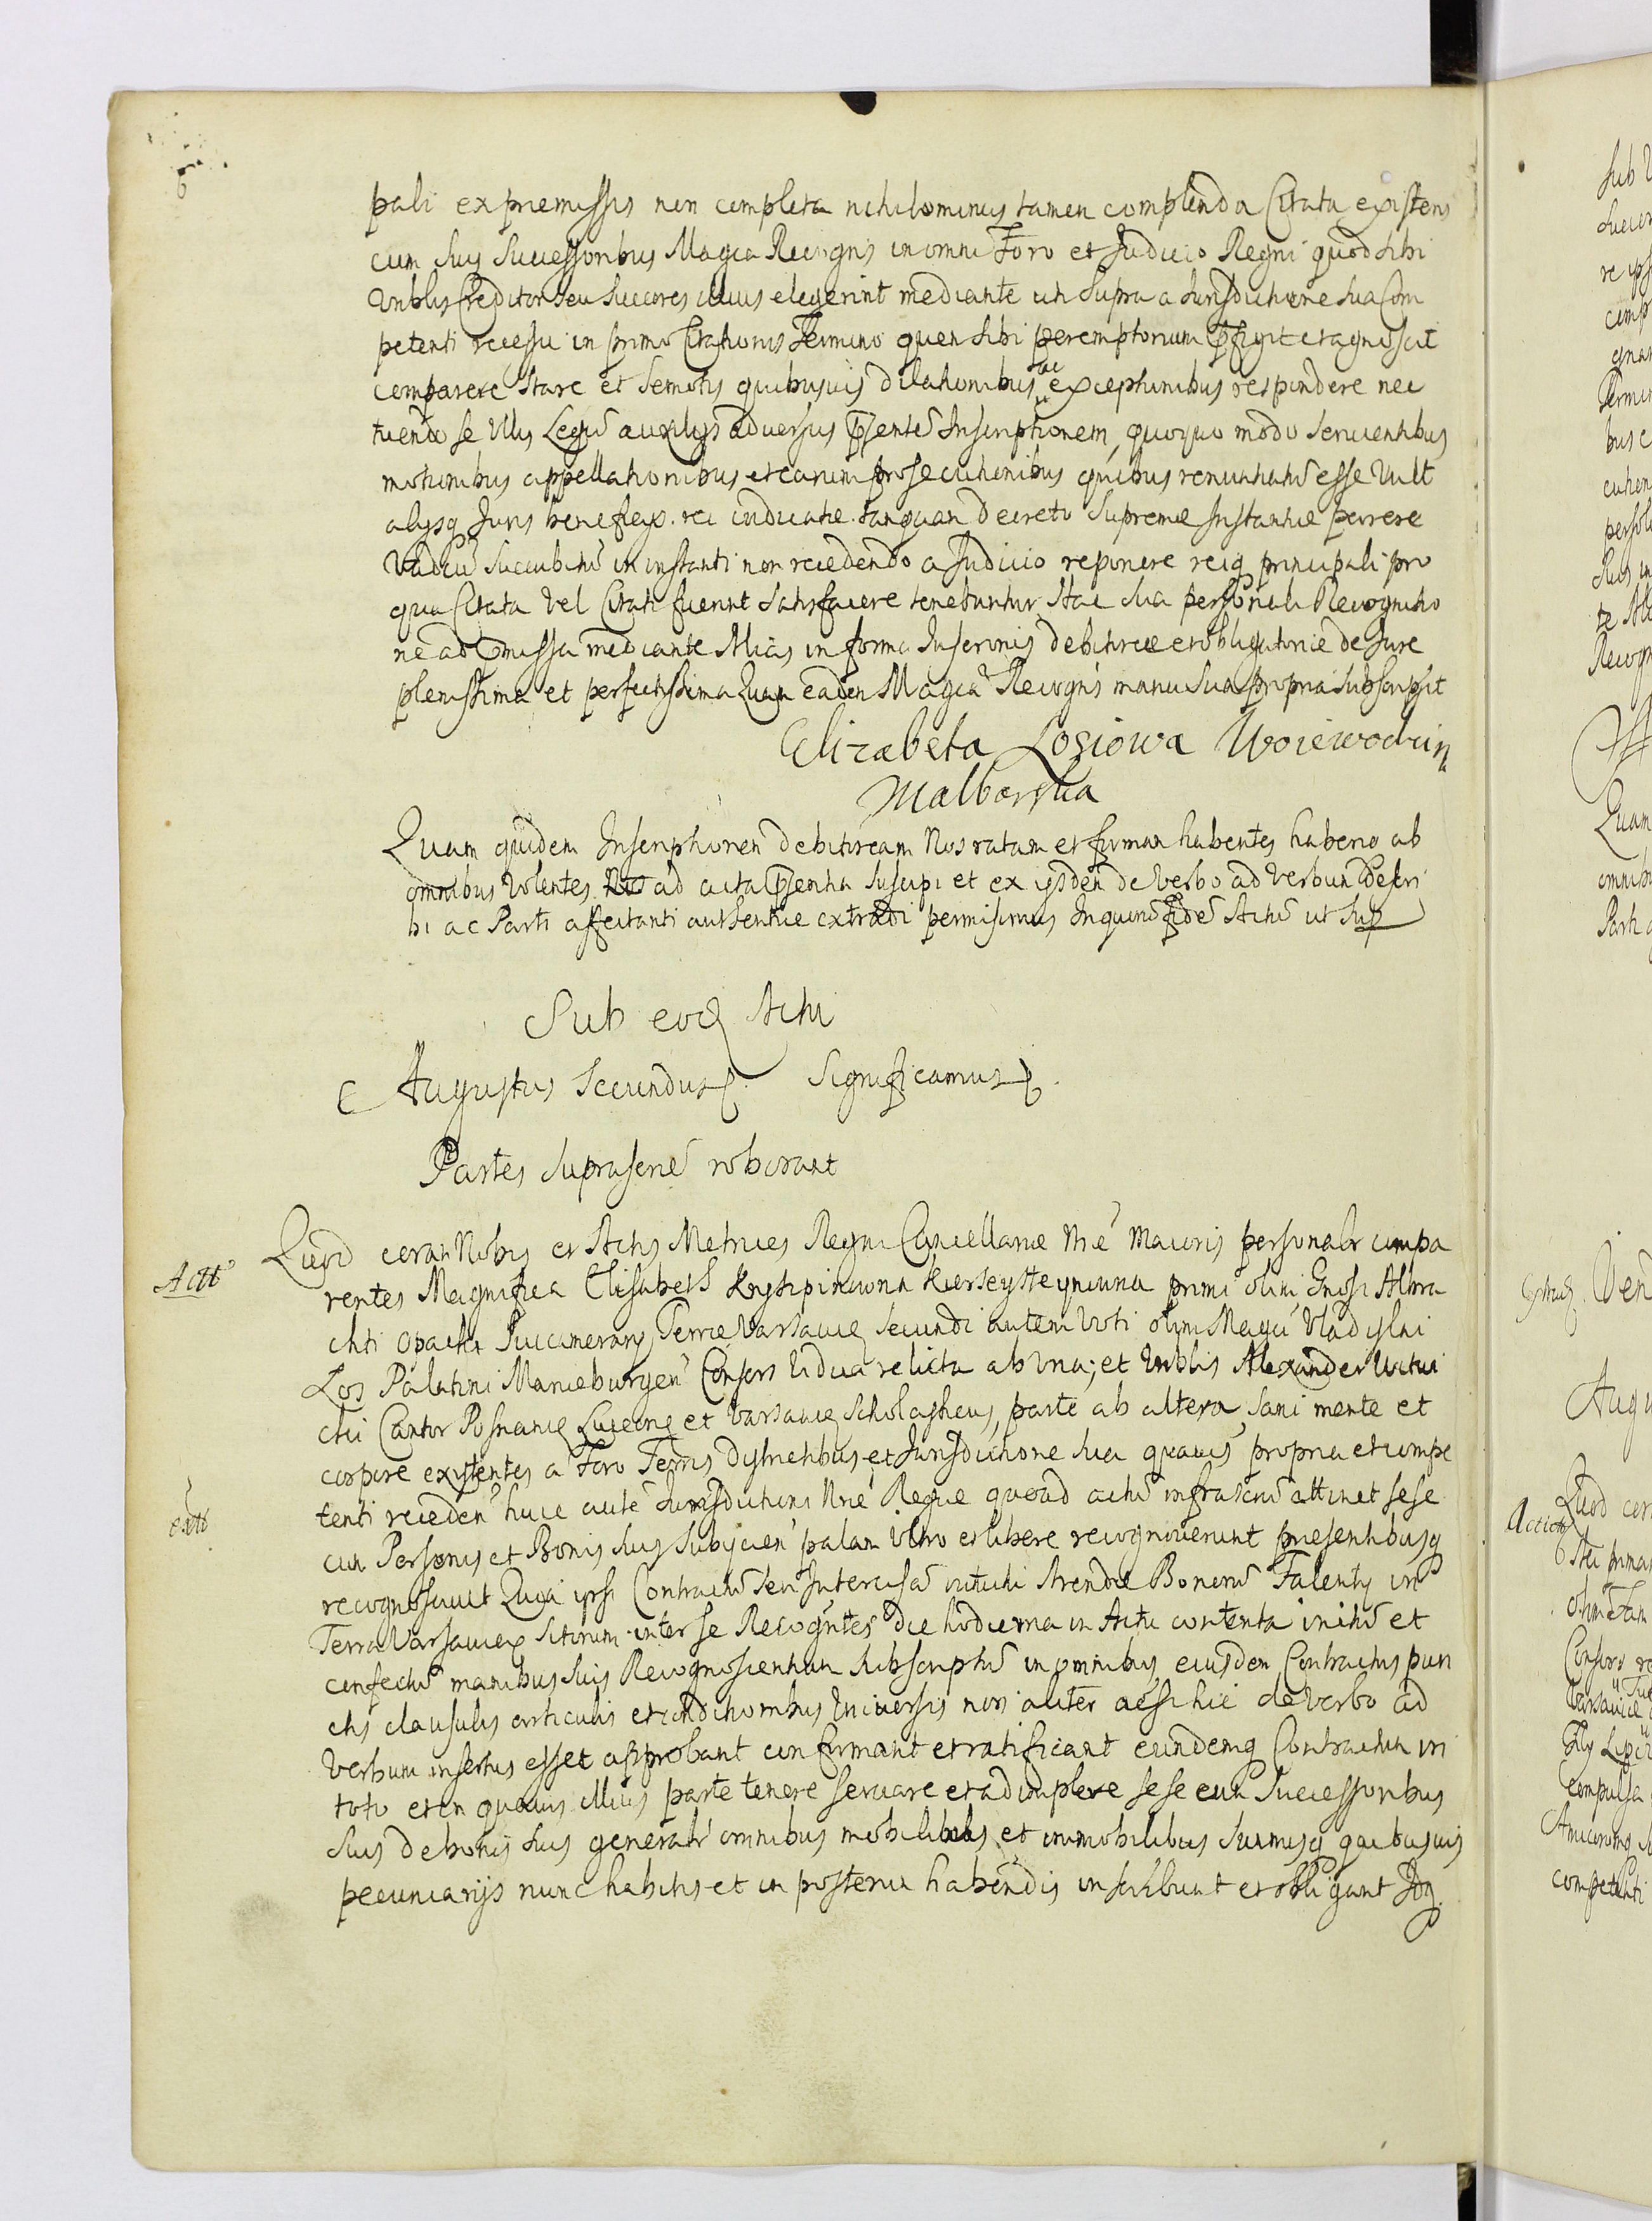 pali ex præmissis non completa nihilominus tamen complenda Citata existens
cum suis Successoribus Magca Recogns in omni Foro et Judicio Regni quod sibi
Vnblis Creditor seu Succores illius elegerint mediante uti supra a Jurisdictione sua Com
petenti recessu in primo Citationis Termino quem sibi peremptorium pfigit et agnoscit
comparere stare et semotis quibusuis dilationibus ac exceptionibus respondere nec
tuendo se Vllis Legū auxilijs aduersus pntem Inscriptionem quoquo modo seruientibus
motionibus appellationibus et earum prosecutionibus quibus renuntiatū esse Vult
alijsq Juris beneficijs rei iudicatæ tanquam decreto Supremæ Instantiæ parere
Vadiū succubitū in instanti non recedendo a Judicio reponere reiq principali pro
qua Citata Vel Citati fuerint satisfacere tenebuntur Hac sua personali Recognitio
ne ad pmissa mediante Mtis in forma Inscrionis debitoriæ et obligatoriæ de Jure
plenissima et perfectissima Quam eadem Magca Recogns manu sua propria subscripsit
Elizabeta Łosiowa Woiewodzin
Malborska
Quam quidem Inscriptionem debitoream Nos ratam et firmam habentes haberiq ab
omnibus Volentes ad acta pntia suscipi et ex ijsdem de Verbo ad Verbum descri
bi ac Parti affectanti authentice extradi permisimus In quorū fidē Actū ut sup
Sub eodē Actu
Augustus Secundus Significamus
Partes suprascrić roborant
Actt
Quod coram Nobis et Actis Metrices Regni Cancellariæ Nræ Maioris personalr compa
rentes Magnifica Elisabeth Krysspinowna Kierseysteynowna primi olim Gnosi Albra
chti Opacki Succamerarij Terræ Varsauię secundi autem Voti olim Magci Vladyslai
Łos Palatini Marieburgeń Consors Vidua relicta ab Vna, et Vnblis Alexander
cki Cantor Posnanię Luceorię et Varsauię Scholasticus, parte ab altera, sani mente et
corpore existentes a Foro Terris districtibus et Jurisdictione sua quauis propria et compe
tenti receden huic autē Jurisdictioni Nræ Regiæ quoad actū infrascrū attinet sese
cum Personis et Bonis suis subijcien palam libere et libere recognouerunt præsentibusq
recognoscunt Quia ipsi Contractū seu Intercisā Arendæ Bonorū Falenty in
Terra Varsauień sitorum inter se Recogntes die hodierna in Actu contenta initū et
confectū manibus suis Recognoscentium subscriptū in omnibus eiusdem Contractus pun
ctis clausulis articulis et conditionibus Vniuersis non aliter ac si hic de Verbo ad
Verbum insertus esset approbant confirmant et ratificant eundemq Contractum in
toto et in quauis illius parte tenere seruare et adimplere sese cum Successoribus
suis de bonis suis generalr omnibus mobilibus et immobilibus summisq quibusuis
pecuniarijs nunc habitis et in posterum habendis inscribunt et obligant Idq